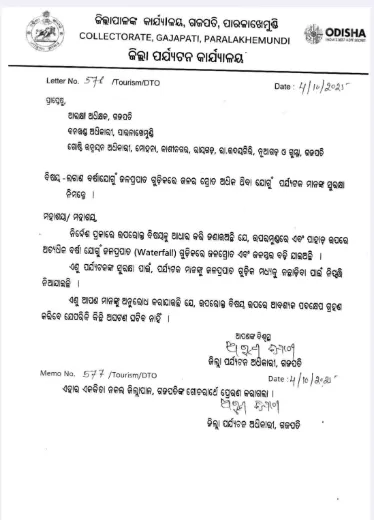 ଜିଲ୍ଲାପାଳଙ୍କ କାର୍ଯ୍ୟାଳୟ, ଗଜପତି, ପାରଳାଖେମୁଣ୍ଡି
COLLECTORATE, GAJAPATI, PARALAKHEMUNDI
ODISHA
INDIA'S BEST KEPT SECRET
ଜିଲ୍ଲା ପର୍ଯ୍ୟଟନ କାର୍ଯ୍ୟାଳୟ
Letter No. 576 /Tourism/DTO Date : 4/10/2025
ପ୍ରାପ୍ତେଷୁ,
ଆରକ୍ଷୀ ଅଧିକ୍ଷକ, ଗଜପତି
ବନଖଣ୍ଡ ଅଧିକାରୀ, ପାରଳାଖେମୁଣ୍ଡି
ଗୋଷ୍ଠି ଉନ୍ନୟନ ଅଧିକାରୀ, ମୋହନା, କାଶୀନଗର, ରାୟଗଡ଼, ଆର.ଉଦୟଗିରି, ନୂଆଗଡ଼ ଓ ଗୁମ୍ମା, ଗଜପତି
ବିଷୟ -ଲଗାଣ ବର୍ଷାଯୋଗୁଁ ଜଳପ୍ରପାତ ଗୁଡିକରେ ଜଳର ସ୍ରୋତ ଅଧିକ ଥିବା ଯୋଗୁଁ ପର୍ଯ୍ୟଟକ ମାନଙ୍କ ସୁରକ୍ଷା
ନିମନ୍ତେ ।
ମହାଶୟ/ ମହାଶୟା,
ନିର୍ଦ୍ଦେଶ ପ୍ରକାରେ ଉପରୋକ୍ତ ବିଷୟକୁ ଆଧାର କରି ଜଣାଉଅଛି ଯେ, ଉପରମୁଣ୍ଡରେ ଏବଂ ପାହାଡ଼ ଉପରେ
ଅତ୍ୟଧିକ ବର୍ଷା ଯୋଗୁଁ ଜଳପ୍ରପାତ (Waterfall) ଗୁଡିକରେ ଜଳସ୍ରୋତ ଏବଂ ଜଳସ୍ତର ବଢ଼ି ଯାଇଅଛି ।
ଏଣୁ ପର୍ଯ୍ୟଟକଙ୍କ ସୁରକ୍ଷା ପାଇଁ, ପର୍ଯ୍ୟଟକ ମାନଙ୍କୁ ଜଳପ୍ରପାତ ଗୁଡିକ ମଧ୍ୟକୁ ନଛାଡ଼ିବା ପାଇଁ ନିଷ୍ପତ୍ତି
ନିଆଯାଇଛି ।
ଏଣୁ ଆପଣ ମାନଙ୍କୁ ଅନୁରୋଧ କରାଯାଉଛି ଯେ, ଉପରୋକ୍ତ ବିଷୟ ଉପରେ ଆବଶ୍ୟକ ପଦକ୍ଷେପ ଗ୍ରହଣ
କରିବେ ଯେପରିକି କିଛି ଅଘଟଣ ଘଟିବ ନାହିଁ ।
ଆପଣଙ୍କ ବିଶ୍ୱସ୍ତ
ଜିଲ୍ଲା ପର୍ଯ୍ୟଟନ ଅଧିକାରୀ, ଗଜପତି
Memo No. 577 /Tourism/DTO Date : 4/10/2025
ଏହାର ଏକକିତା ନକଲ ଜିଲ୍ଲାପାଳ, ଗଜପତିଙ୍କ ଗୋଚରାର୍ଥେ ପ୍ରେରଣ କରାଗଲା ।
ଜିଲ୍ଲା ପର୍ଯ୍ୟଟନ ଅଧିକାରୀ, ଗଜପତି